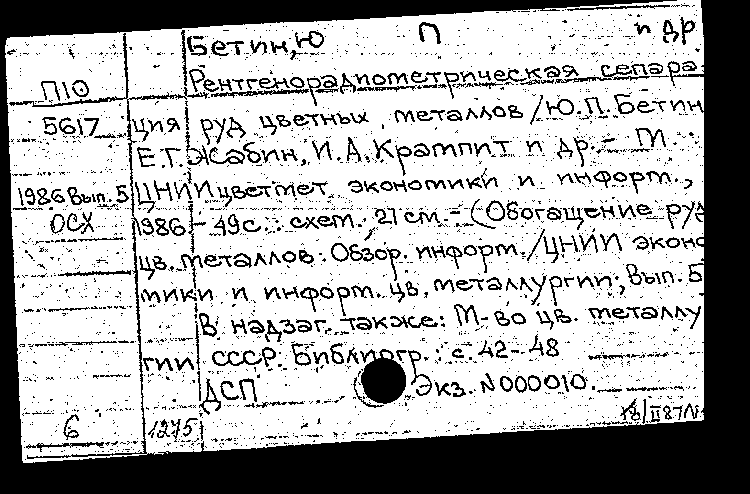 Бетин, Ю П и др
Рентгенорадиометрическая сепара-
П10
5617 ция руд цветных металлов / Ю.П. Бетин
Е.Г. Жабин, И.А. Крампит и др. - М.:
1986 Вып. 5 ЦНИИцветмет экономики и информ.,
ОСХ 1986 - 49 с.: схем., 21 см. - (Обогащение руд
цв. металлов: Обзор. информ. / ЦНИИ эконо
мики и информ. цв. металлургии; Вып. 5
В надзаг. также: М-во цв. металлу
гии СССР. Библиогр.: с. 42-48
ДСП Экз. N000010.
6 1275